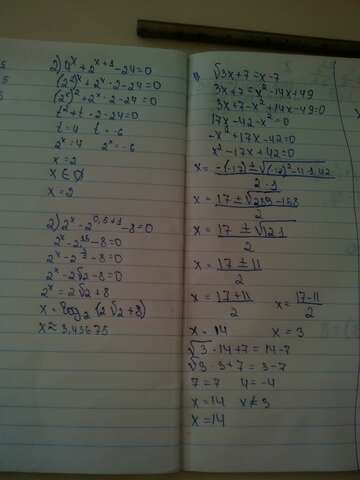 2) 4^x + 2^(x+1) - 24 = 0
(2²)^x + 2^x · 2 - 24 = 0
(2^x)² + 2^x · 2 - 24 = 0
t² + t · 2 - 24 = 0
t = 4 t = -6
2^x = 4 2^x = -6
x = 2
x ∈ ∅
x = 2
2) 2^x - 2^(0,5+1) - 8 = 0
2^x - 2^(1,5) - 8 = 0
2^x - 2^(3/2) - 8 = 0
2^x - 2√2 - 8 = 0
2^x = 2√2 + 8
x = log₂ (2√2 + 8)
x ≈ 3,43675
√3x + 7 = x - 7
3x + 7 = x² - 14x + 49
3x + 7 - x² + 14x - 49 = 0
17x - 42 - x² = 0
-x² + 17x - 42 = 0
x² - 17x + 42 = 0
x = (-(-17) ± √((-17)² - 4·1·42)) / (2·1)
x = (17 ± √(289 - 168)) / 2
x = (17 ± √121) / 2
x = (17 ± 11) / 2
x = (17 + 11) / 2 x = (17 - 11) / 2
x = 14 x = 3
√3 · 14 + 7 = 14 - 7
√3 · 3 + 7 = 3 - 7
7 = 7 4 = -4
x = 14 x ≠ 3
x = 14